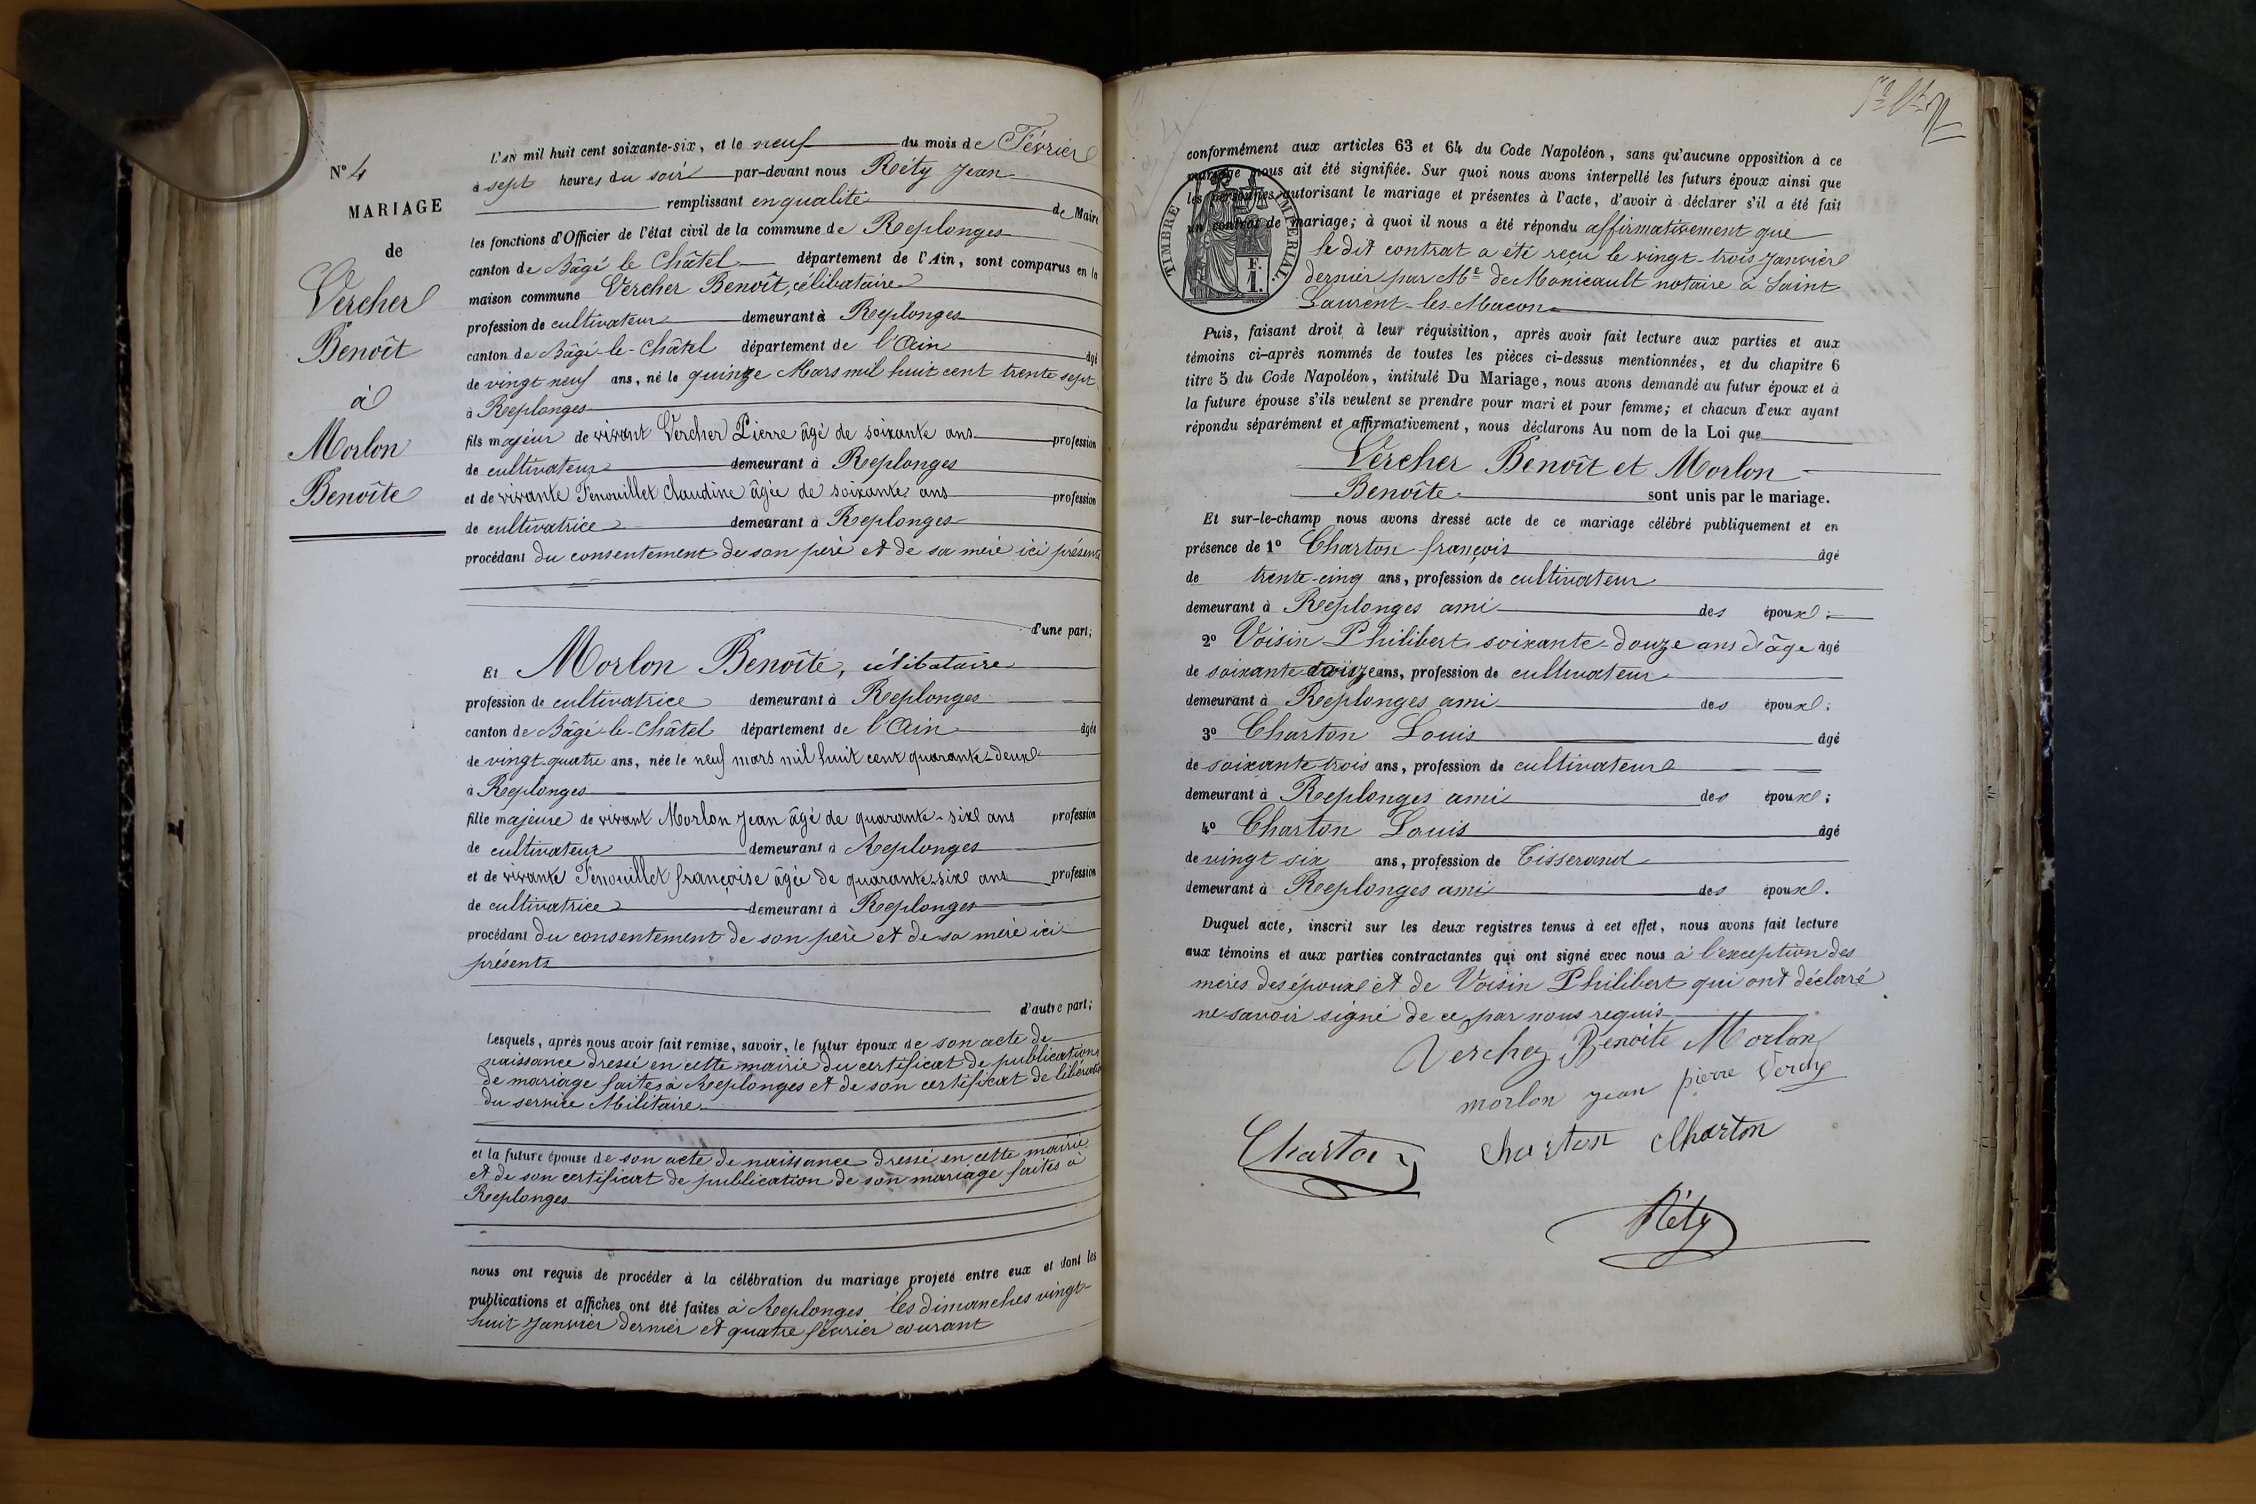 N° 4
MARIAGE
de
Vercher
Benoît
à
Morlon
Benoîte
L'AN mil huit cent soixante-six, et le neuf du mois de Février
à sept heures du soir par-devant nous Réty Jean
remplissant en qualité de Maire
les fonctions d'Officier de l'état civil de la commune de Replonges
canton de Bâgé le Châtel département de l'Ain, sont comparus en la
maison commune Vercher Benoît, célibataire
profession de cultivateur demeurant à Replonges
canton de Bâgé-le-Châtel département de l'Ain âgé
de vingt neuf ans, né le quinze Mars mil huit cent trente sept
à Replonges
fils majeur de vivant Vercher Pierre âgé de soixante ans profession
de cultivateur demeurant à Replonges
et de vivante Fenouillet Claudine âgée de soixante ans profession
de cultivatrice demeurant à Replonges
procédant du consentement de son père et de sa mère ici présents
d'une part;
Et Morlon Benoîte, célibataire
profession de cultivatrice demeurant à Replonges
canton de Bâgé-le-Châtel département de l'Ain âgée
de vingt-quatre ans, née le neuf mars mil huit cent quarante-deux
à Replonges
fille majeure de vivant Morlon Jean âgé de quarante-six ans profession
de cultivateur demeurant à Replonges
et de vivante Fenouillet françoise âgée de quarante-six ans profession
de cultivatrice demeurant à Replonges
procédant du consentement de son père et de sa mère ici
présents
d'autre part;
Lesquels, après nous avoir fait remise, savoir, le futur époux de son acte de
naissance dressé en cette mairie du certificat de publications
de mariage faites à Replonges et de son certificat de libération
du service Militaire
et la future épouse de son acte de naissance dressé en cette mairie
et de son certificat de publication de son mariage faites à
Replonges
nous ont requis de procéder à la célébration du mariage projeté entre eux et dont les
publications et affiches ont été faites à Replonges les dimanches vingt-
huit Janvier dernier et quatre février courant
conformément aux articles 63 et 64 du Code Napoléon, sans qu'aucune opposition à ce
mariage nous ait été signifiée. Sur quoi nous avons interpellé les futurs époux ainsi que
les personnes autorisant le mariage et présentes à l'acte, d'avoir à déclarer s'il a été fait
un contrat de mariage; à quoi il nous a été répondu affirmativement que
le dit contrat a été reçu le vingt-trois Janvier
dernier par Me de Monicault notaire à Saint
Laurent-les-Macon
TIMBRE IMPERIAL.
F.
1.
Puis, faisant droit à leur réquisition, après avoir fait lecture aux parties et aux
témoins ci-après nommés de toutes les pièces ci-dessus mentionnées, et du chapitre 6
titre 5 du Code Napoléon, intitulé Du Mariage, nous avons demandé au futur époux et à
la future épouse s'ils veulent se prendre pour mari et pour femme; et chacun d'eux ayant
répondu séparément et affirmativement, nous déclarons Au nom de la Loi que
Vercher Benoît et Morlon
Benoîte sont unis par le mariage.
Et sur-le-champ nous avons dressé acte de ce mariage célébré publiquement et en
présence de 1° Charton françois âgé
de trente-cinq ans, profession de cultivateur
demeurant à Replonges ami des époux;
2° Voisin Philibert soixante-douze ans d'âge âgé
de soixante douze ans, profession de cultivateur
demeurant à Replonges ami des époux;
3° Charton Louis âgé
de soixante trois ans, profession de cultivateur
demeurant à Replonges ami des époux;
4° Charton Louis âgé
de vingt six ans, profession de Tisserand
demeurant à Replonges ami des époux.
Duquel acte, inscrit sur les deux registres tenus à cet effet, nous avons fait lecture
aux témoins et aux parties contractantes qui ont signé avec nous à l'exception des
mères des époux et de Voisin Philibert qui ont déclaré
ne savoir signé de ce par nous requis
Verchez Benoite Morlon
morlon jean pierre Verche
Charton charton Charton
Réty